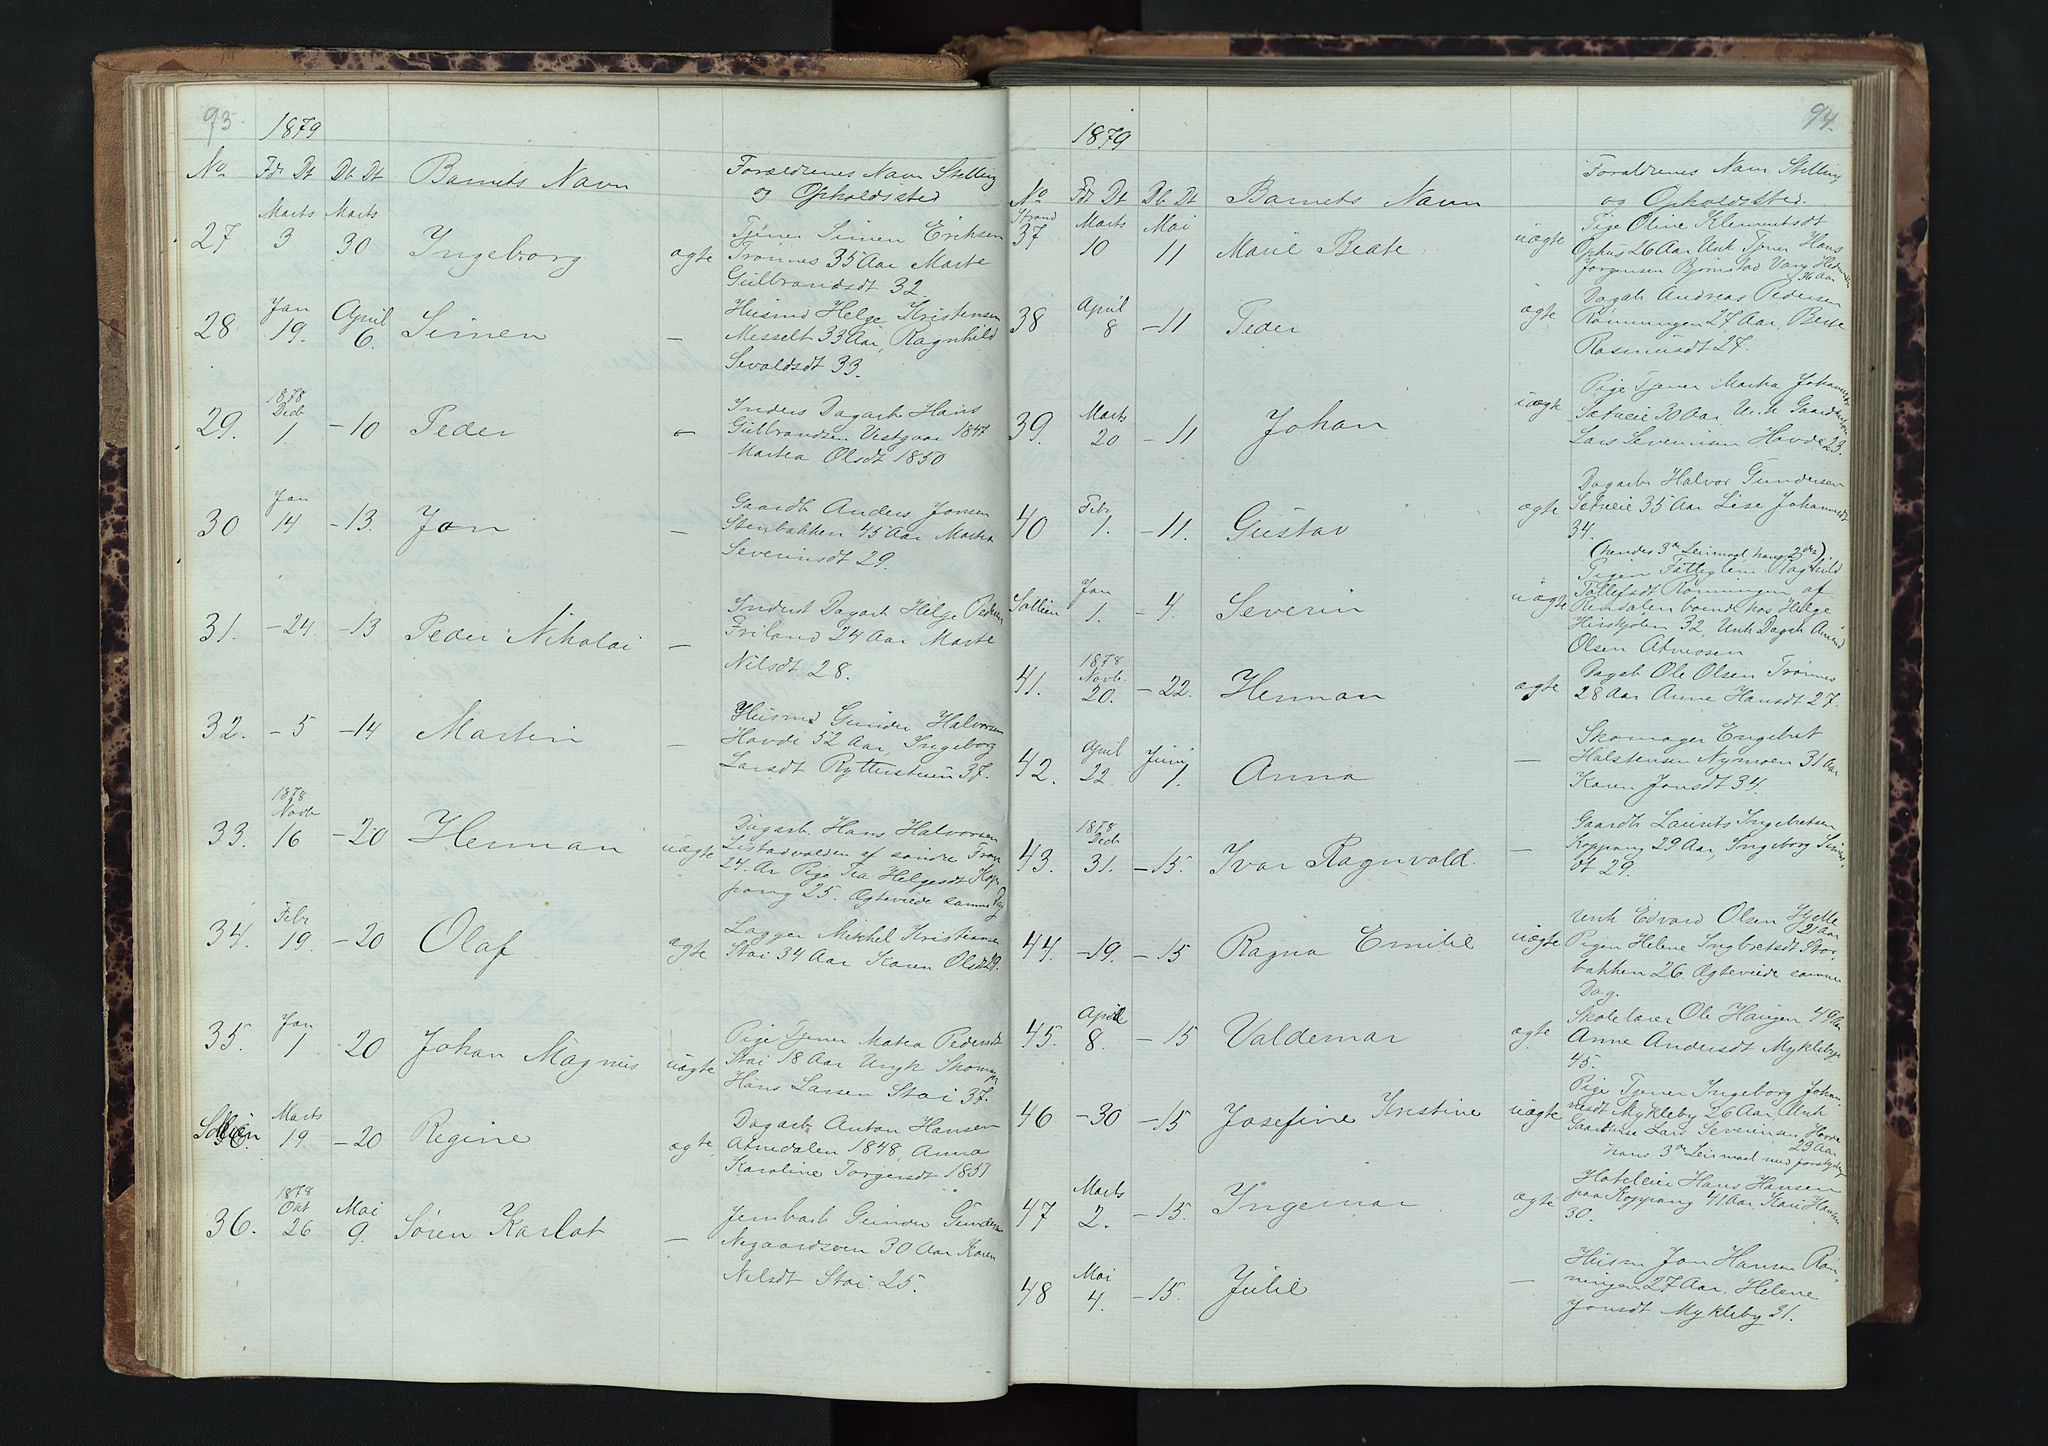 93
1879
No Fdr Dt Db Dt Barnets Navn Forældrenes Navn Stelling
og Opholdssted
27 Marts 3 Marts 30 Ingeborg ægte Tjener Simen Eriksen
Trønnes 35 Aar Marte
Gulbrandsdt 32.
28 Jan 19. April 6. Simen — Husmd Helge Kristensen
Messelt 33 Aar, Ragnhild
Sevaldsdt 33.
29. 1878 Decbr 1. - 10 Peder — Inders Dagarb Hans
Gulbrandsen Vestgaar 1847
Martea Olsdt 1850
30 Jan 14 - 13. Jon — Gaardb Anders Jonsen
Stenbakken 45 Aar Martea
Severinsdt 29.
31. - 24. - 13 Peder Nikolai — Inderst Dagarb Helge Peders
Friland 24 Aar Marte
Nilsdt 28.
32. - 5 - 14 Martin — Husmd Gunder Halvorsen
Hovde 52 Aar, Ingeborg
Larsdt Rytterstuen 37.
33. 1878 Novb 16 - 20 Herman uægte Dagarb. Hans Halvorsen
af søndre
24. Ar Pige Helgesdt Kop-
pang 25. Ægteviede samme Dag
34. Febr 19. - 20 Olaf ægte Lægger Mikkel Kristiansen
Stai 34 Aar Karen Olsdt 29.
35. Jan 1 - 20 Johan Magnus uægte Pige Tjener Matea Pedersdt
Stai 18 Aar Ungk Skomag
Hans Larsen Stai 37.
Sollien Marts 19. - 20 Regine ægte Dagarb Anton Hansen
Atnedalen 1848, Anna
Karoline Torgersdt 1851
36. 1878 Okt 26 Mai 9. Søren Karlot — Jernbarb Gunder Gunders
Negaardsven 30 Aar Karen
Nilsdt Stai 25.
94.
1879
No Fdr Dt Db Dt Barnets Navn Forældrenes Navn Stelling
og Opholdssted.
Strand 37 Marts 10 Mai 11 Marie Beate uægte Pige Oline Klementsdt
Ophus 26 Aar Unk Tjener Hans
Jørgensen Bjørnstad Vang Hedem
26 Aar
38 April 8 - 11 Peder ægte Dagab Andreas Pedersen
Rønningen 27 Aar, Berte
Rasmusdt 27.
39. Marts 20 - 11 Johan uægte Pige Tjener Martea Johannesdt
Sætreie 30 Aar Unk Gaardbruer
Lars Severinsen Hovde 23.
40 Febr 1. - 11. Gustav ægte Dagarb Halvor Gundersen
Sætreie 35 Aar Lise Johannesdt
34.
(hendes 3de Leirmaal hans 2det)
Sollien Jan 1. - 4. Severin uægte Pigen Fattiglem Ragnhild
Tollefsdt Rønningen af
Rendalen boende hos Helge
32, Unk Dagab Amund
Olsen Atneosen
41. 1878 Novb. 20. - 22. Herman ægte Dagab Ole Olsen Trønnes
28 Aar Anne Hansdt 27.
42. April 22. Juni 1. Anna — Skomager Engebret
Halstensen Nymoen 31 Aar
Karen Jonsdt 34.
43. 1878 Decb 31. - 15. Ivar Ragnvald. — Gaardb Laurits Ingebretsen
Koppang 29 Aar, Ingeborg Simens
dt 29.
44. - 19. - 15 Ragna Emilie uægte Unk Edvard Olsen Hjelle
21 Aar
Pigen Helene Ingbretsdt Stor-
bakken 26. Ægteviede samme
Dag.
45. April 8. - 15 Valdemar ægte Skolelærer Ole Haugen 46 Aar
Anne Andersdt Mykleby
45.
46 - 30 - 15. Josefine Kristine uægte Pige Tjener Ingeborg Johan-
nesdt Mykleby 26 Aar, Unk
Gaardbruer Lars Severinsen Hovde
23 Aar
hans 3de Leirmaal med forskjelig
47 Marts 2. - 15. Ingemar ægte Hoteleier Hans Hansen
paa Koppang 41 Aar, Kari Hansen
30.
48 Mai 4. - 15. Julie — Husm Jon Hansen Røn-
ningen 27 Aar, Helene
Jonsdt Mykleby 31.